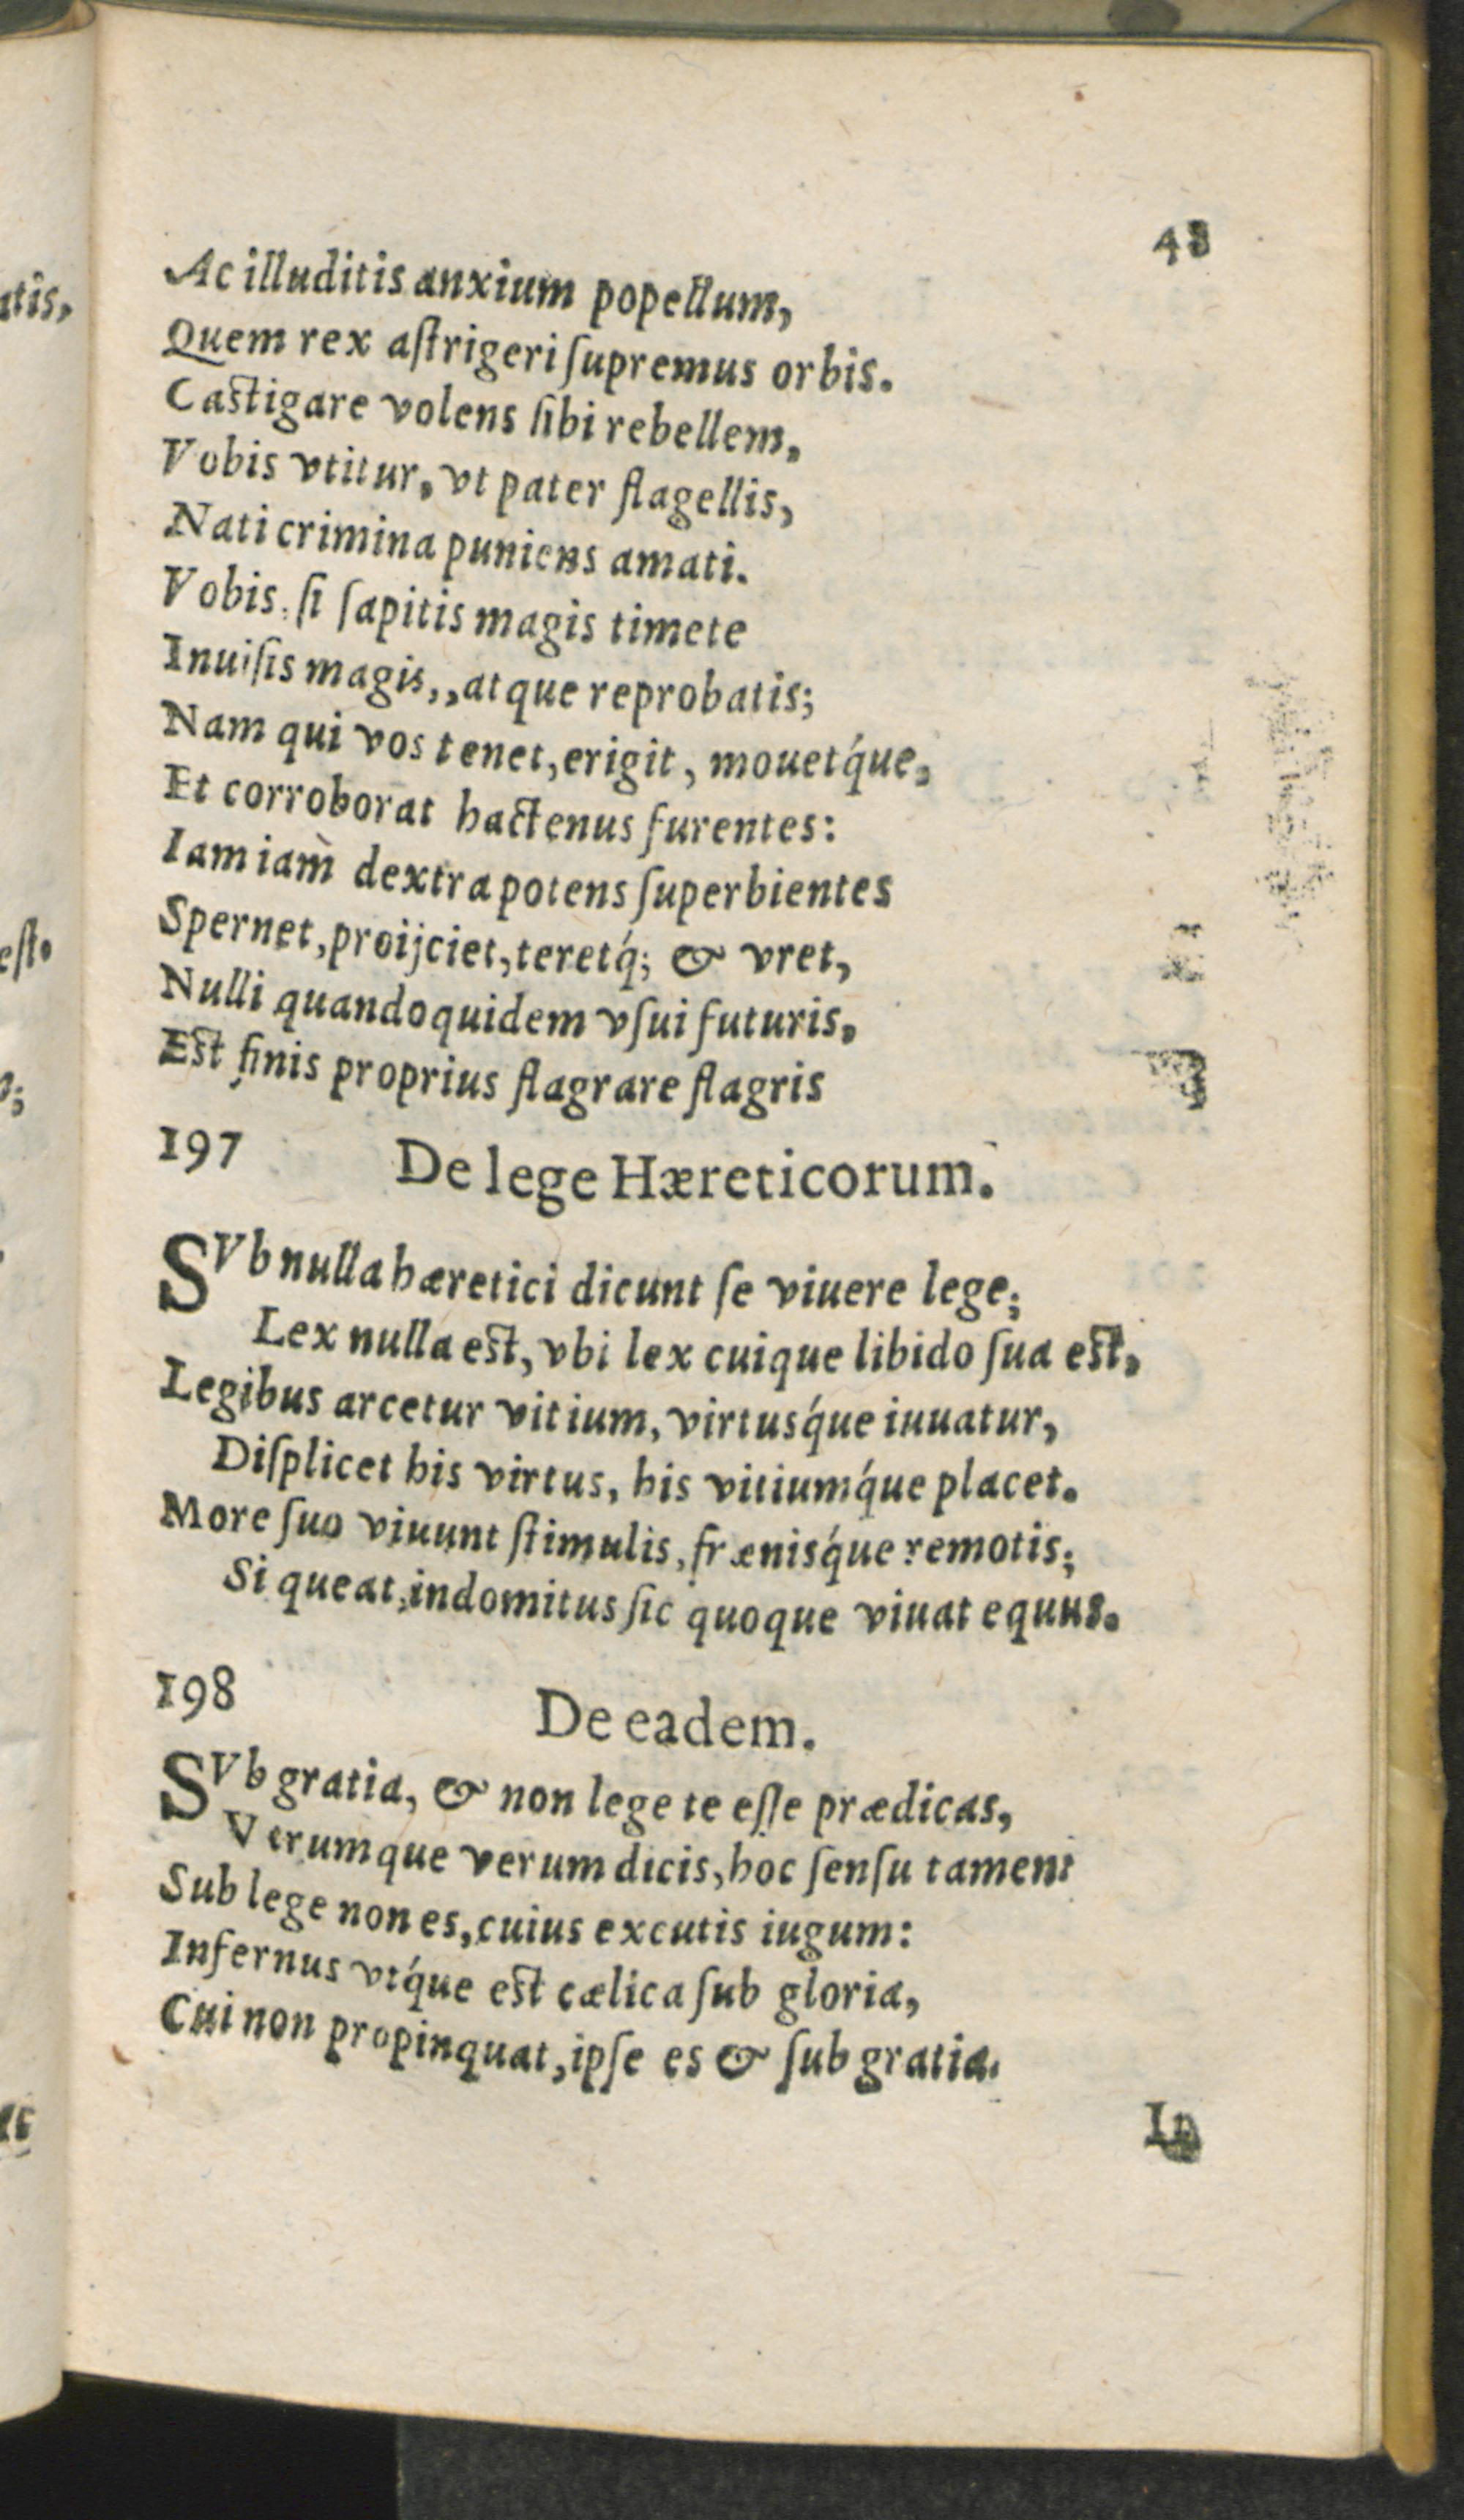 48
Ac illuditis anxium popellum,
Quem rex aſtrigeri ſupremus orbis.
Castigare volens ſibi rebellem,
Vobis vtitur, vt pater flagellis,
Nati crimina puniens amati.
Vobis, ſi ſapitis magis timete
Inuiſis magis,, atque reprobatis;
Nam qui vos tenet, erigit, mouetq́ue,
Et corroborat hactenus furentes:
Iam iam̀ dextra potens ſuperbientes
Spernet, proijciet, teretq́; & vret,
Nulli quandoquidem vſui futuris,
Est finis proprius flagrare flagris
197 De lege Hæreticorum.
SVb nulla hæretici dicunt ſe viuere lege;
Lex nulla est, vbi lex cuique libido ſua est,
Legibus arcetur vitium, virtusq́ue iuuatur,
Diſplicet his virtus, his vitiumq́ue placet.
More ſuo viuunt ſtimulis, frænisq́ue remotis;
Si queat, indomitus ſic quoque viuat equus.
198 De eadem.
SVb gratia, & non lege te eſſe prædicas,
Verumque verum dicis, hoc ſenſu tamen:
Sub lege non es, cuius excutis iugum:
Infernus vtq́ue est cælica ſub gloria,
Cui non propinquat, ipſe es & ſub gratia.
In
atis,
eſt.